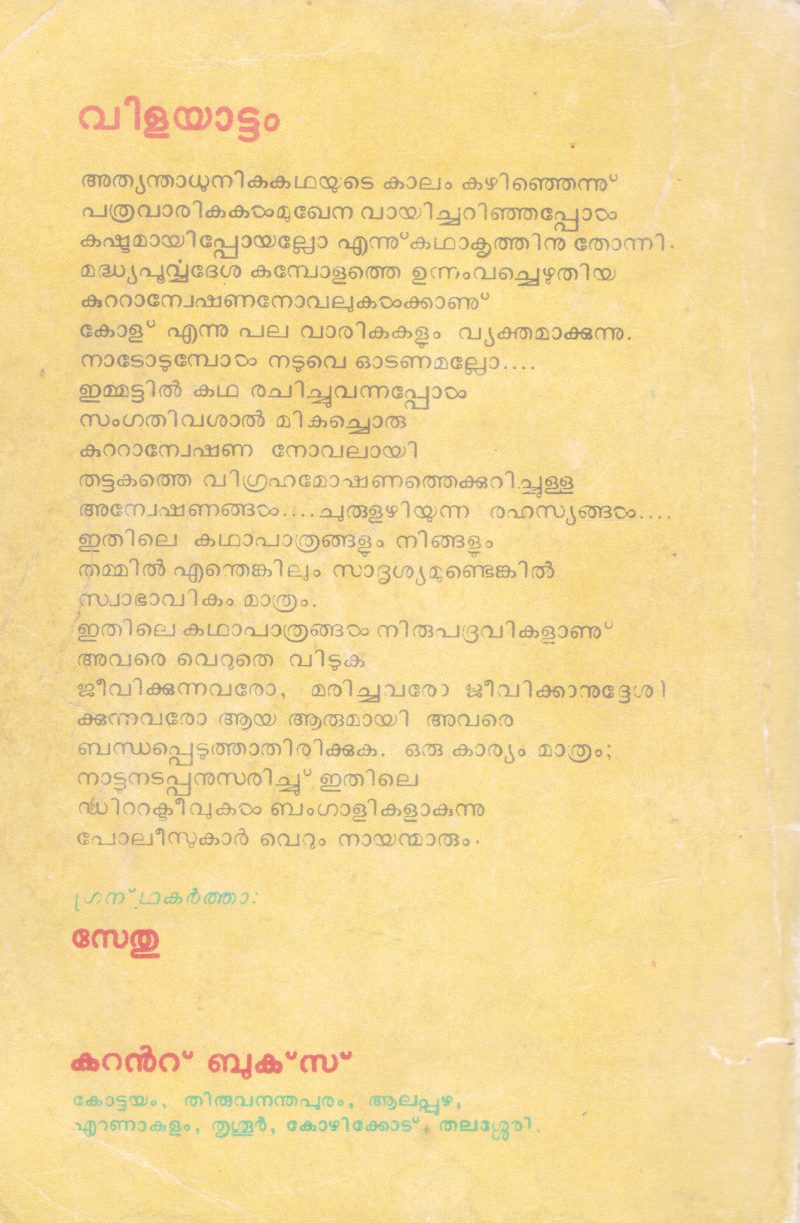 വിളയാട്ടം
അത്യന്താധുനികകഥയുടെ കാലം കഴിഞ്ഞെന്നു്
പത്രവാരികകൾമുഖേന വായിച്ചറിഞ്ഞപ്പോൾ
കഷ്ടമായിപ്പോയല്ലോ എന്നു്കഥാകൃത്തിനു തോന്നി.
മദ്ധ്യപൂർവ്വദേശ കമ്പോളത്തെ ഉന്നംവച്ചെഴുതിയ
കുററാന്വേഷണനോവലുകൾക്കാണു്
കോളു് എന്നു പല വാരികകളും വ്യക്തമാക്കുന്നു.
നാടോടുമ്പോൾ നടുവെ ഓടണമല്ലോ....
ഇമ്മട്ടിൽ കഥ രചിച്ചുവന്നപ്പോൾ
സംഗതിവശാൽ മികച്ചൊരു
കുററാന്വേഷണ നോവലായി
തട്ടകത്തെ വിഗ്രഹമോഷണത്തെക്കുറിച്ചുള്ള
അന്വേഷണങ്ങൾ....ചുരുളഴിയുന്ന രഹസ്യങ്ങൾ....
ഇതിലെ കഥാപാത്രങ്ങളും നിങ്ങളും
തമ്മിൽ എന്തെങ്കിലും സാദൃശ്യമുണ്ടെങ്കിൽ
സ്വാഭാവികം മാത്രം.
ഇതിലെ കഥാപാത്രങ്ങൾ നിരുപദ്രവികളാണു്
അവരെ വെറുതെ വിടുക
ജീവിക്കുന്നവരോ, മരിച്ചവരോ ജീവിക്കാനുദ്ദേശി
ക്കുന്നവരോ ആയ ആരുമായി അവരെ
ബന്ധപ്പെടുത്താതിരിക്കുക. ഒരു കാര്യം മാത്രം;
നാട്ടുനടപ്പനുസരിച്ചു് ഇതിലെ
ഡിററക്ടീവുകൾ ബംഗാളികളാകുന്നു
പോലീസുകാർ വെറും നായന്മാരും.
ഗ്രന്ഥകർത്താ:
സേതു
കറൻറ് ബുക്സ്
കോട്ടയം, തിരുവനന്തപുരം, ആലപ്പുഴ,
എറണാകുളം, തൃശൂർ, കോഴിക്കോടു്, തലശ്ശേരി.